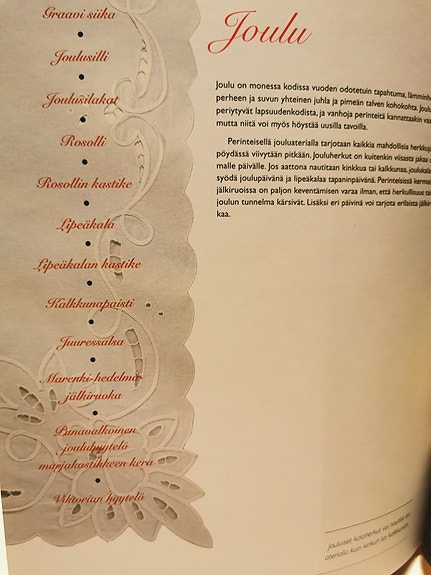 Graavi siika
Joulusilli
Joulusilakat
Rosolli
Rosollin kastike
Lipeäkala
Lipeäkalan kastike
Kalkkunapaisti
Juuressalsa
Marenki-hedelmä-
jälkiruoka
Punavalkoinen
jouluhyytelö
marjakastikkeen kera
Viktorian hyytelö
Joulu
Joulu on monessa kodissa vuoden odotetuin tapahtuma, lämminh
perheen ja suvun yhteinen juhla ja pimeän talven kohokohta. Joulu
periytyvät lapsuudenkodista, ja vanhoja perinteitä kannattaakin va
mutta niitä voi myös höystää uusilla tavoilla.
Perinteisellä jouluaterialla tarjotaan kaikkia mahdollisia herkkuj
pöydässä viivytään pitkään. Jouluherkut on kuitenkin viisasta jakaa
malle päivälle. Jos aattona nautitaan kinkkua tai kalkkunaa, joulukala
syödä joulupäivänä ja lipeäkalaa tapaninpäivänä. Perinteisissä kermai
jälkiruoissa on paljon keventämisen varaa ilman, että herkullisuus ta
joulun tunnelma kärsivät. Lisäksi eri päivinä voi tarjota erilaista jälkir
kaa.
Jouluiset kalaherkut
aterialla kuin kinkut tai kalkkunat.